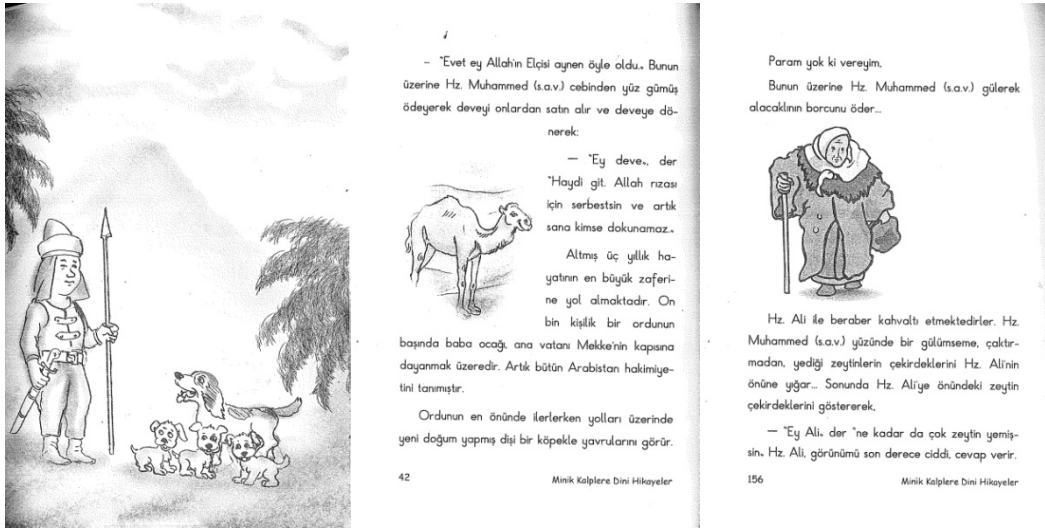 – "Evet ey Allah'ın Elçisi aynen öyle oldu„ Bunun
üzerine Hz. Muhammed (s.a.v.) cebinden yüz gümüş
ödeyerek deveyi onlardan satın alır ve deveye dö-
nerek:
— "Ey deve„ der
"Haydi git. Allah rızası
için serbestsin ve artık
sana kimse dokunamaz„
Altmış üç yıllık ha-
yatının en büyük zaferi-
ne yol almaktadır. On
bin kişilik bir ordunun
başında baba ocağı, ana vatanı Mekke'nin kapısına
dayanmak üzeredir. Artık bütün Arabistan hakimiye-
tini tanımıştır.
Ordunun en önünde ilerlerken yolları üzerinde
yeni doğum yapmış dişi bir köpekle yavrularını görür.
42
Minik Kalplere Dini Hikayeler
Param yok ki vereyim.
Bunun üzerine Hz. Muhammed (s.a.v.) gülerek
alacaklının borcunu öder...
Hz. Ali ile beraber kahvaltı etmektedirler. Hz.
Muhammed (s.a.v.) yüzünde bir gülümseme, çaktır-
madan, yediği zeytinlerin çekirdeklerini Hz. Ali'nin
önüne yığar... Sonunda Hz. Ali'ye önündeki zeytin
çekirdeklerini göstererek,
— "Ey Ali„ der "ne kadar da çok zeytin yemiş-
sin„ Hz. Ali, görünümü son derece ciddi, cevap verir.
156
Minik Kalplere Dini Hikayeler